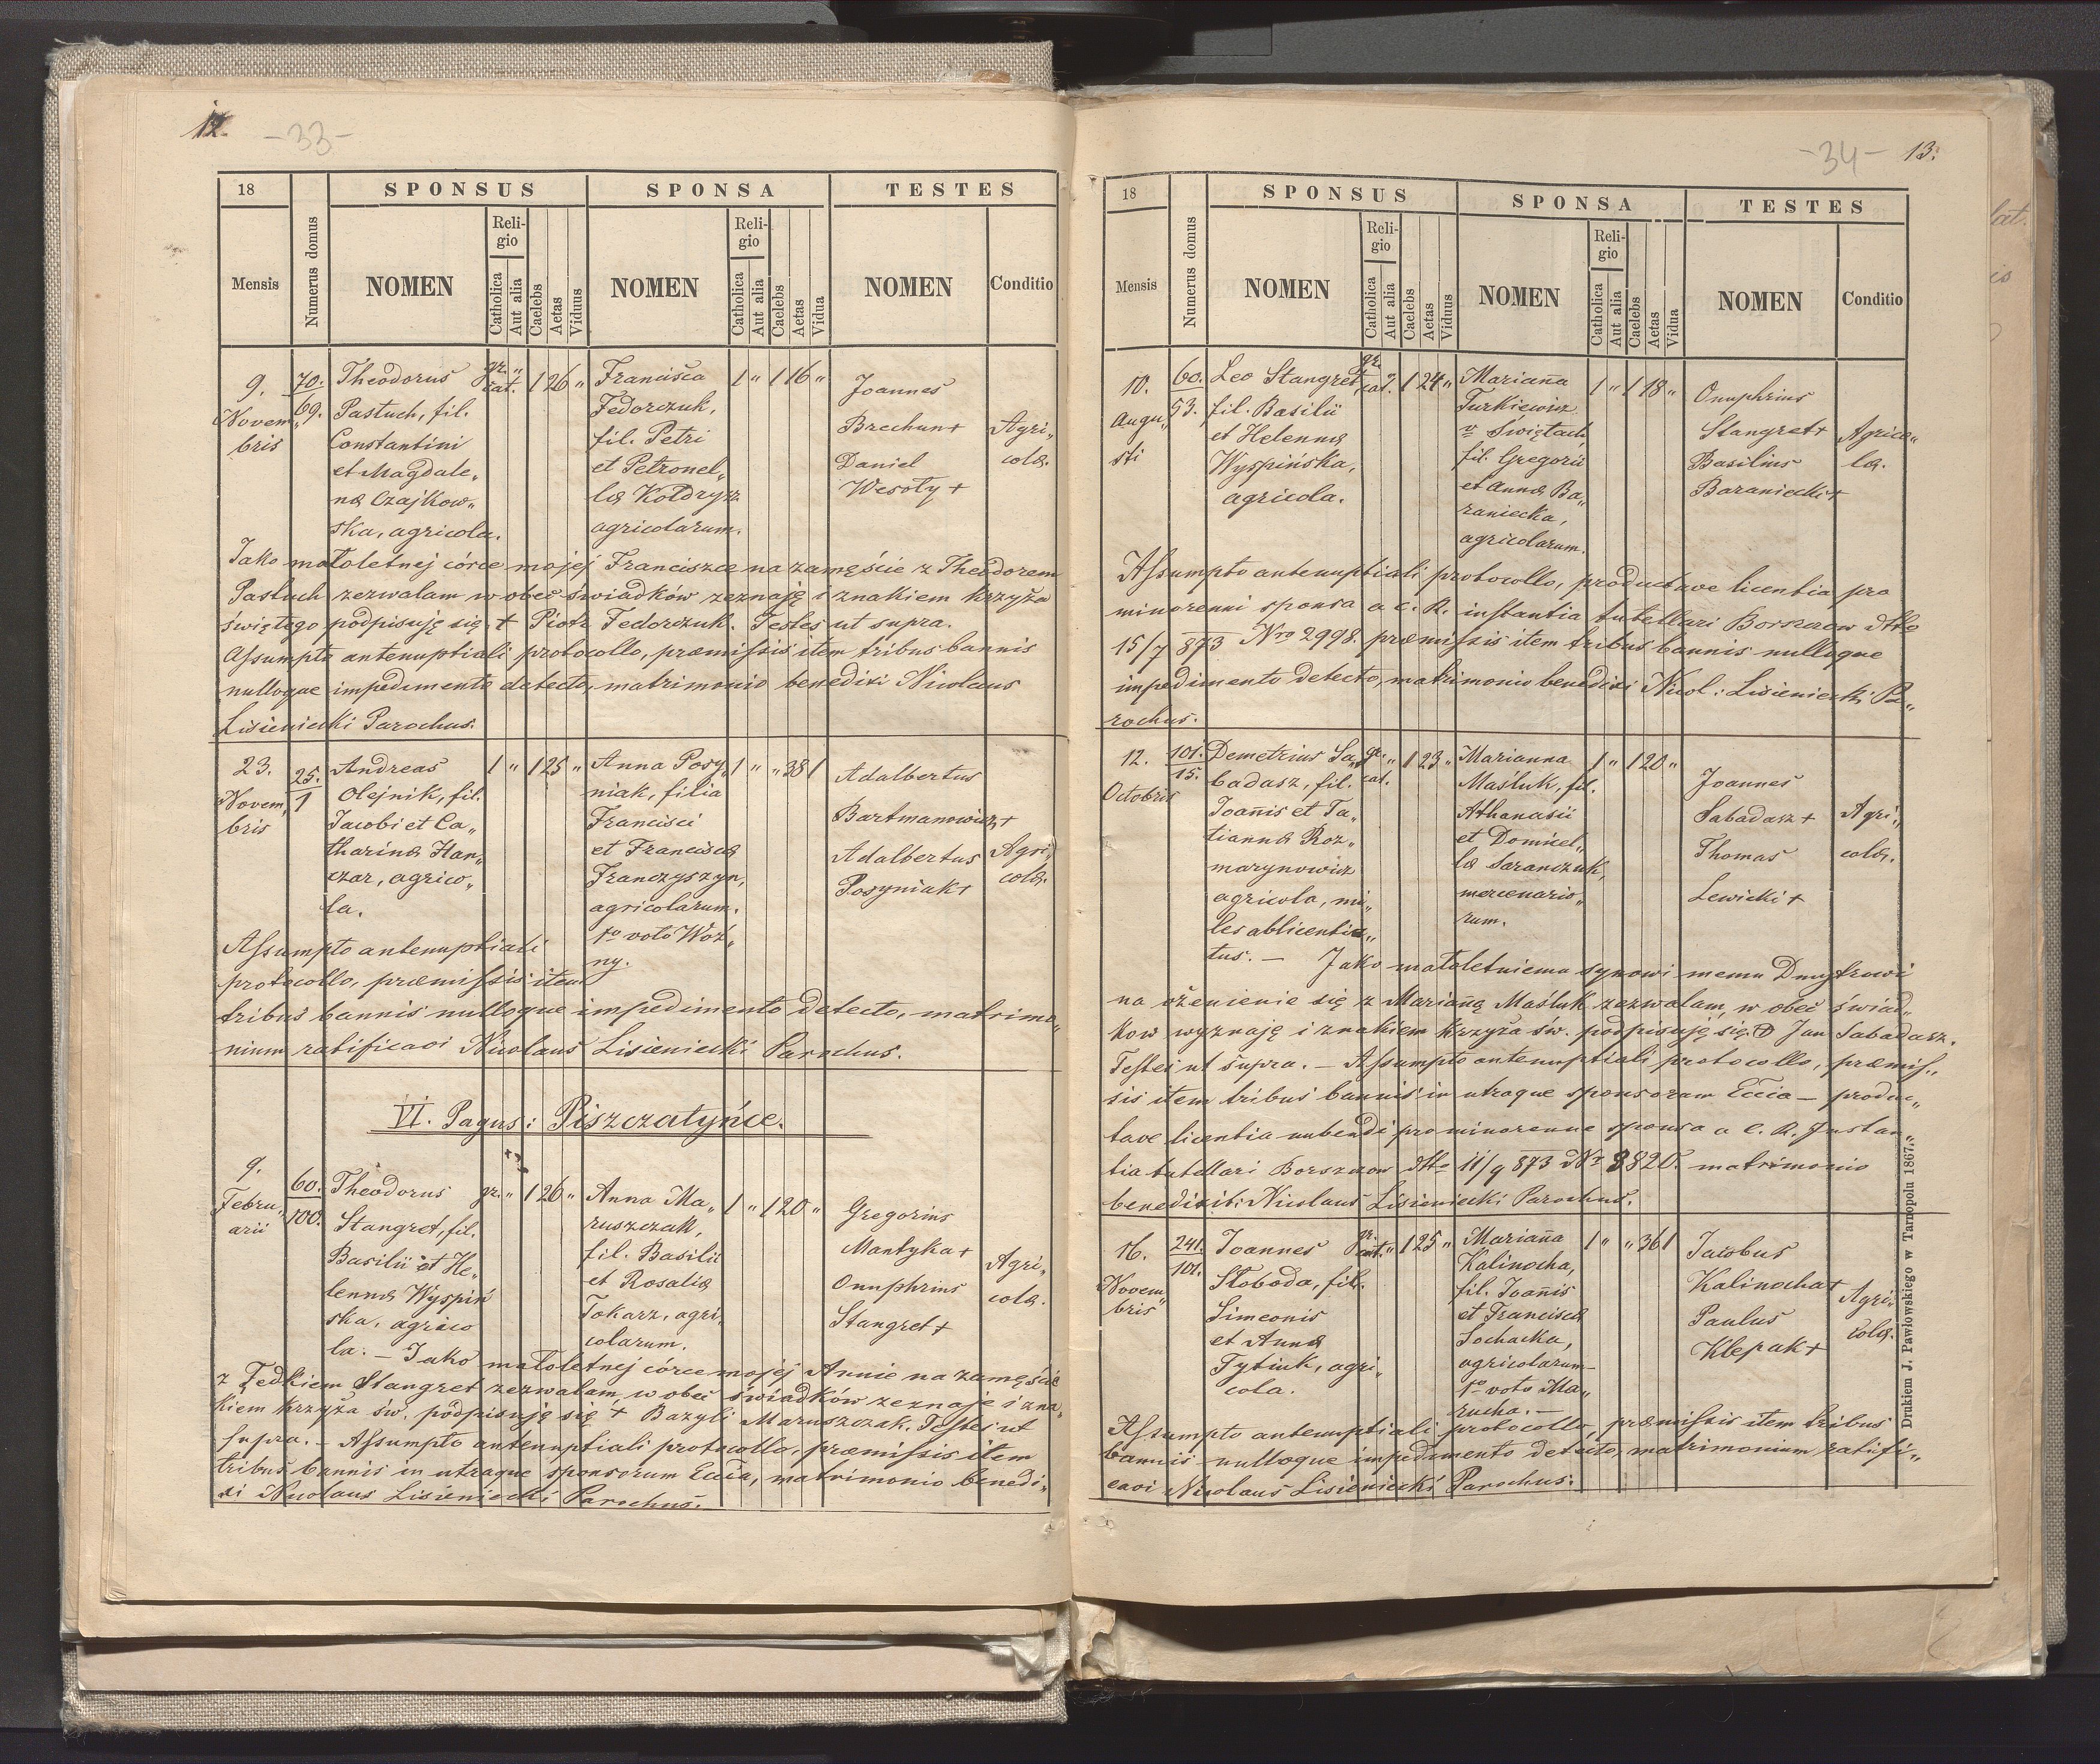 12.
-33-
18
Mensis
Numerus domus
SPONSUS
NOMEN
Reli-
gio
Catholica
Aut alia
Caelebs
Aetas
Viduus
SPONSA
NOMEN
Reli-
gio
Catholica
Aut alia
Caelebs
Aetas
Vidua
TESTES
NOMEN
Conditio
9.
Novem„
bris
70.
69.
Theodorus
Pastuch, fil.
Constantini
et Magdale„
na Czajkow„
ska, agricola.
gr. „
cat.
1 26 „
Francisca
Fedorczuk,
fil. Petri
et Petronel„
la Kołdrysz
agricolarum.
1 „ 1 16 „
Joannes
Brechun+
Daniel
Wesoły+
Agri„
cola.
Jako małoletnej córce mojej Franciszce na zamęście z Theodorem
Pastuch zezwalam w obec świadków zeznaję i znakiem krzyża
świętego podpisuję się + Piotr Fedorczuk. Testes ut supra.
Assumpto antenuptiali protocollo, præmissis item tribus bannis
nulloque impedimento detecto, matrimonio benedixi Nicolaus
Lisieniecki Parochus.
23.
Novem„
bris
25.
1
Andreas
Olejnik, fil.
Jacobi et Ca„
tharina Han„
czar, agrico„
la.
1 „ 1 25 „
Anna Posy„
niak, filia
Francisci
et Francisca
Franczyszyn,
agricolarum.
1o voto Woź„
ny.
1 „ „ 38 1
Adalbertus
Bartmanowicz+
Adalbertus
Posyniak+
Agri„
cola.
Assumpto antenuptiali
protocollo, præmissis item
tribus bannis nulloque impedimento detecto, matrimo„
nium ratificavi Nicolaus Lisieniecki Parochus.
VI. Pagus: Piszczatyńce.
9.
Febru„
arii
60.
100.
Theodorus
Stangret, fil.
Basilii et He„
lenna Wyspiń
ska, agrico
la. – Jako małoletnej córce mojej Annie na zamęście
gr. „ 1 26 „
Anna Ma„
ruszczak,
fil. Basilii
et Rosalia
Tokarz, agri„
colarum.
1 „ 1 20 „
Gregorius
Mantyka+
Onuphrius
Stangret+
Agri„
cola.
z Fedkiem Stangret zezwalam, w obec świadków zeznaje i zna„
kiem krzyża św. podpisuję się + Bazyli Maruszczak. Testes ut
supra. – Assumpto antenuptiali protocollo, præmissis item
tribus bannis in utraque sponsorum Eccia, matrimonio benedi„
xi Nicolaus Lisieniecki Parochus.
-34-
13.
18
Mensis
Numerus domus
SPONSUS
NOMEN
Reli-
gio
Catholica
Aut alia
Caelebs
Aetas
Viduus
SPONSA
NOMEN
Reli-
gio
Catholica
Aut alia
Caelebs
Aetas
Vidua
TESTES
NOMEN
Conditio
10.
Augu„
sti
60.
53.
Leo Stangret,
fil. Basilii
et Helenna
Wyspińska,
agricola.
gr.
cat. 1 24 „
Marianna
Turkiewicz
v Świętach,
fil. Gregorii
et Anna Ba„
raniecka,
agricolarum.
1 „ 1 18 „
Onuphrius
Stangret+
Basilius
Baraniecki+
Agrico„
la.
Assumpto antenuptiali protocollo, productave licentia pro
minorenni sponsa a C. R. instantia tutellari Borszczow dtto
15/7 873 Nro 2998. præmissis item tribus bannis nulloque
impedimento detecto, matrimonio benedixi Nicol: Lisieniecki Pa„
rochus.
12.
Octobris
101.
15.
Demetrius Sa„
badasz, fil.
Joannis et Ta„
tianna Roz„
marynowicz
agricola, mi„
les ablicentia„
tus. – Jako małoletniemu synowi memu Dmytrowi
gr. „
cat. 1 23 „
Marianna
Maśluk, fil.
Athanasii
et Domicel„
la Saranczuk,
mercenario„
rum.
1 „ 1 20 „
Joannes
Sabadasz+
Thomas
Lewicki+
Agri„
cola.
na ożenienie się z Marianą Maśluk zezwalam, w obec świad„
kow wyznaję i znakiem krzyża św. podpisuję się + Jan Sabadasz.
Testes ut supra. – Assumpto antenuptiali protocollo, præmis„
sis item tribus bannis in utraque sponsorum Eccia – produc„
tave licentia nubendi pro minorenne sponsa a C. R. Instan„
tia tutellari Borszczow dtto 11/9 873 Nr 3820. matrimonio
benedixit: Nicolaus Lisieniecki Parochus.
16.
Novem„
bris
241.
101.
Joannes
Słoboda, fil.
Simeonis
et Anna
Tytiuk, agri„
cola.
gr.
cat. „ 1 25 „
Marianna
Kalinocha,
fil. Joannis
et Francisca
Sochacka,
agricolarum –
1o voto Ma„
rucha. –
1 „ „ 36 1
Jacobus
Kalinocha+
Paulus
Klepak+
Agri„
cola.
Assumpto antenuptiali protocollo, præmissis item tribus
bannis nulloque impedimento detecto, matrimonium ratifi„
cavi Nicolaus Lisieniecki Parochus.
Drukiem J. Pawłowskiego w Tarnopolu 1867.